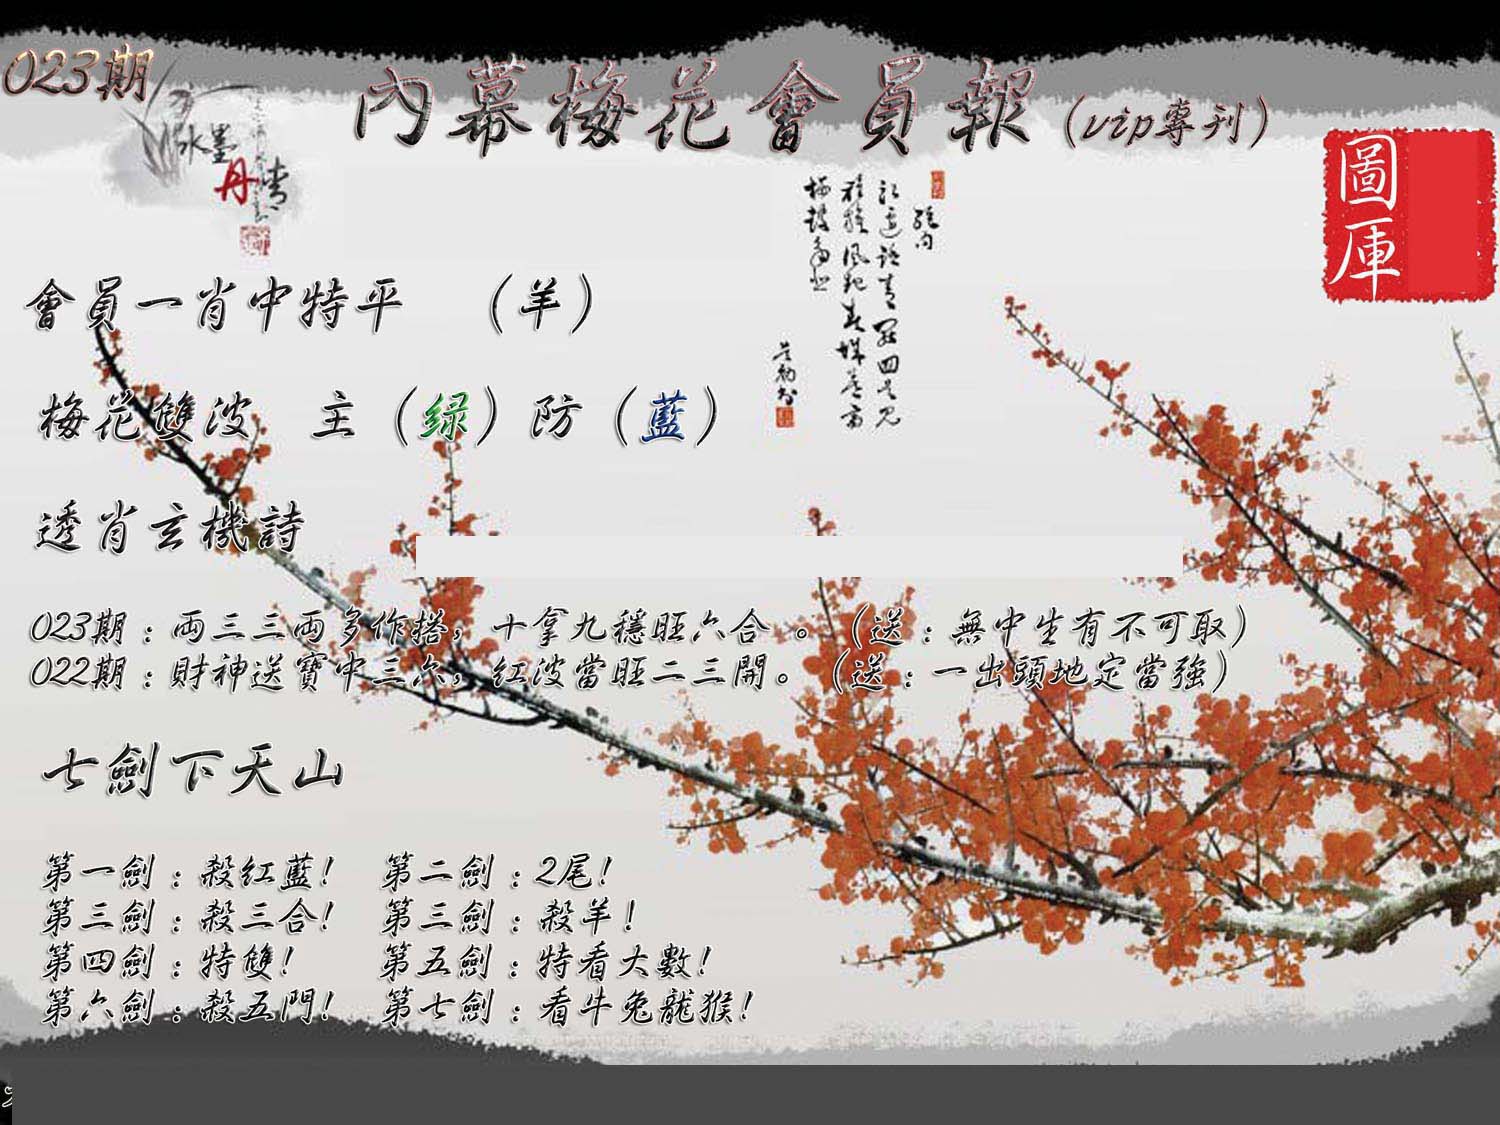 023期
內幕梅花會員報（vip專刊）
水墨
丹青
圖庫
會員一肖中特平　（羊）
梅花雙波　主（绿）防（藍）
透肖玄機詩
023期：両三三両多作搭，十拿九穩旺六合 。（送：無中生有不可取）
022期：財神送寶中三六，红波當旺二三開。（送：一出頭地定當強）
七劍下天山
第一劍：殺红藍！　第二劍：2尾！
第三劍：殺三合！　第三劍：殺羊！
第四劍：特雙！　第五劍：特看大數！
第六劍：殺五門！　第七劍：看牛兔龍猴！